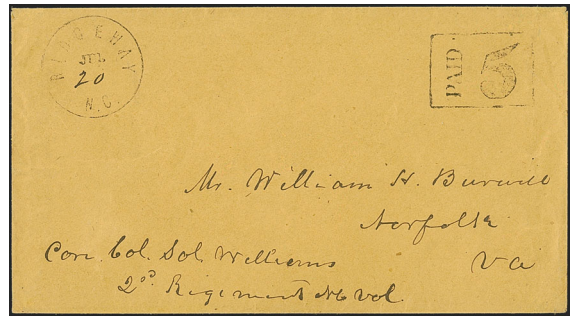 RIDGEWAY
JUL
20
N.C.
PAID 5
Mr. William H. Burwell
Norfolk
Va
Care Col. Sol. Williams
2nd Regiment NC Vol.